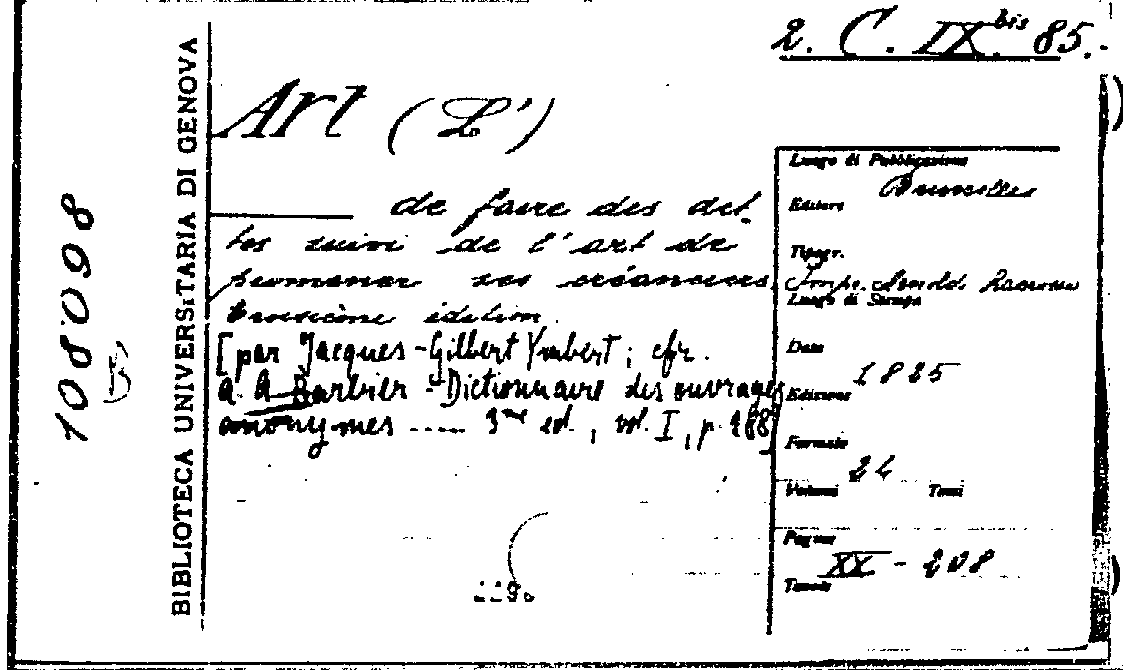 2. C. IX.bis 85.
Art (L')
de faire des det
tes suivi de l'art de
promener ses créanciers
troisième édition.
[par Jacques-Gilbert Ymbert ; cfr.
A. A. Barbier - Dictionnaire des ouvrages
anonymes ..... 3me ed., vol. I, p. 288]
108098
B
BIBLIOTECA UNIVERSITARIA DI GENOVA
Luogo di Pubblicazione
Bruxelles
Editore
Tipogr.
Impr. Arnold
Luogo di Stampa
Data
1825
Edizione
Formato
24
Volumi Tomi
Pagine
XX - 208
Tavole